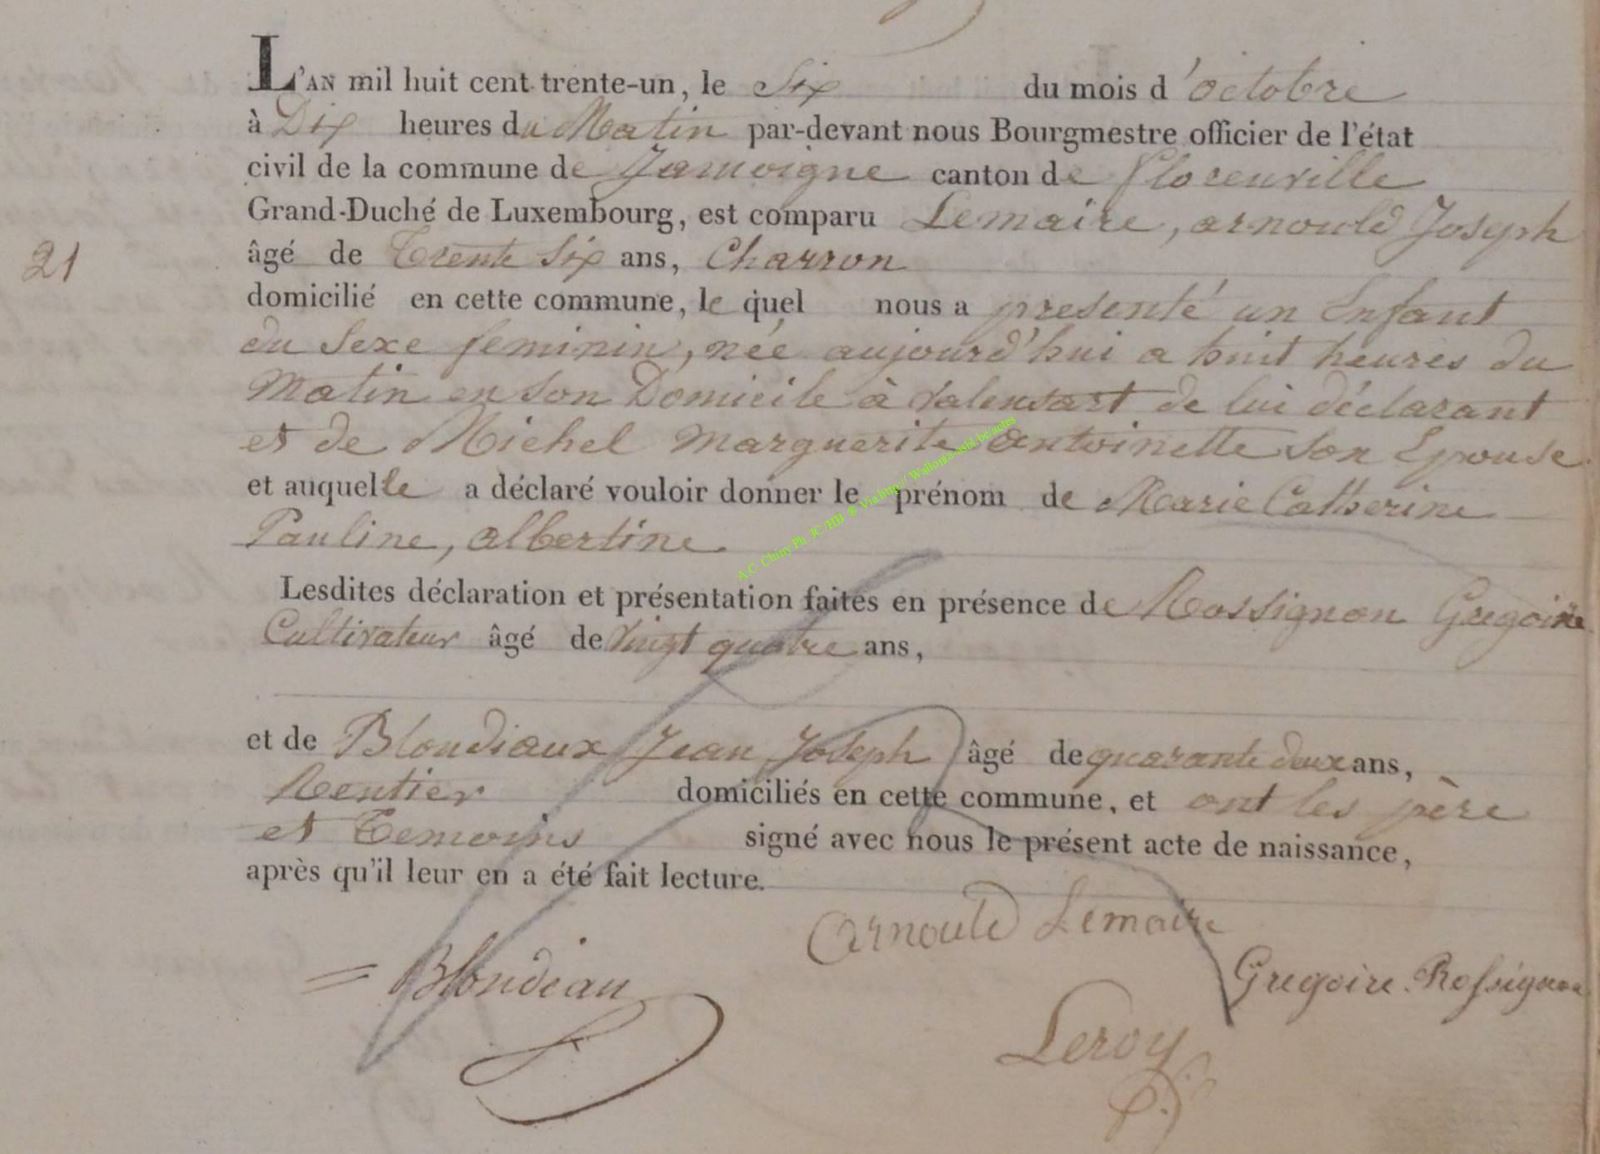 L'AN mil huit cent trente-un, le Six du mois d'octobre
à Dix heures du Matin par-devant nous Bourgmestre officier de l'état
civil de la commune de Jamoigne canton de florenville
Grand-Duché de Luxembourg, est comparu Lemaire, arnould Joseph
21
âgé de Trente Six ans, Charron
domicilié en cette commune, le quel nous a presenté un Enfant
du Sexe feminin, née aujourd'hui a huit heures du
Matin en son Domicile à Valensart de lui déclarant
et de Michel Marguerite antoinette son Epouse
et auquelle a déclaré vouloir donner le prénom de Marie Catherine
Pauline, albertine.
Lesdites déclaration et présentation faites en présence de Rossignon Gregoire
Cultivateur âgé de Vingt quatre ans,
et de Blondiaux Jean Joseph âgé de quarante deux ans,
Rentier domiciliés en cette commune, et ont les père
et Temoins signé avec nous le présent acte de naissance,
après qu'il leur en a été fait lecture.
Arnould Lemaire
Blondeau
Gregoire Rossignon
Leroy